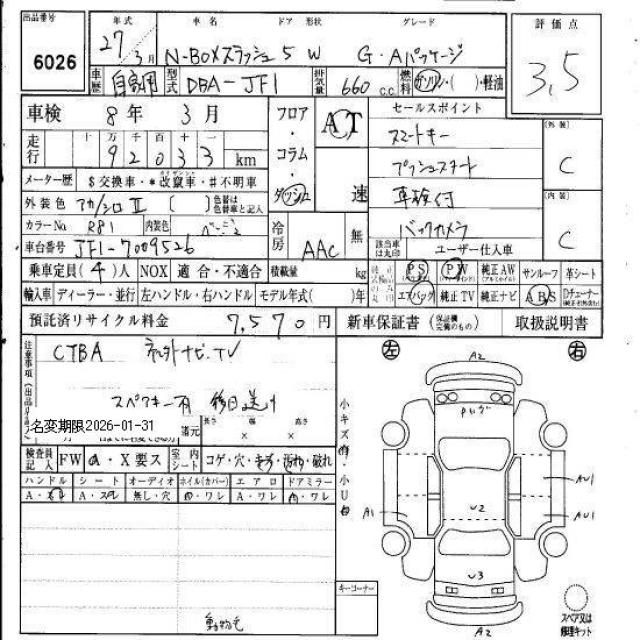 出品番号 年式 車名 ドア 形状 グレード 評価点
6026 27年3月 N-BOXスラッシュ 5 W G・Aパッケージ 3.5
車歴 自家用 型式 DBA-JF1 排気量 660 c.c. 燃料 ガソリン・( )・軽油
車検 8年 3月 フロア・コラム・ダッシュ AT 速 セールスポイント
走行 十万千百十一 92033 km スマートキー
メーター歴 $交換車・*改竄車・#不明車 プッシュスタート
外装色 アカ/シロⅡ ( ) 色替は色替車と記入 車検付
カラーNo R81 内装色 冷房 AAC 無 バックカメラ
車台番号 JF1-7009526 該当車は丸印 ユーザー仕入車
(外装) C
(内装) C
乗車定員(4)人 NOX 適合・不適合 積載量 kg PS PW 純正AW サンルーフ 革シート
輸入車 ディーラー・並行 左ハンドル・右ハンドル モデル年式( )年 エアバック 純正TV 純正ナビ ABS Dチューナー
預託済リサイクル料金 7,570円 新車保証書(保証欄完備のもの) 取扱説明書
注意事項(出品店) CTBA 社外ナビ・TV
スペアキー有 後日送り
名変期限2026-01-31 諸元 長さ × 幅 × 高さ
検査員記入 FW A・X要ス 室内シート コゲ・穴・キズ・汚れ・破れ
ハンドル シート オーディオ ホイル(カバー) エアロ ドアミラー
A・スレ A・スレ 無し・穴 A・ワレ A・ワレ A・ワレ
動物毛
小キズ有・小U有
キーコーナー
左 右
A2
U2
A1
AU1
AU1
U3
A2
スペア又は修理キット